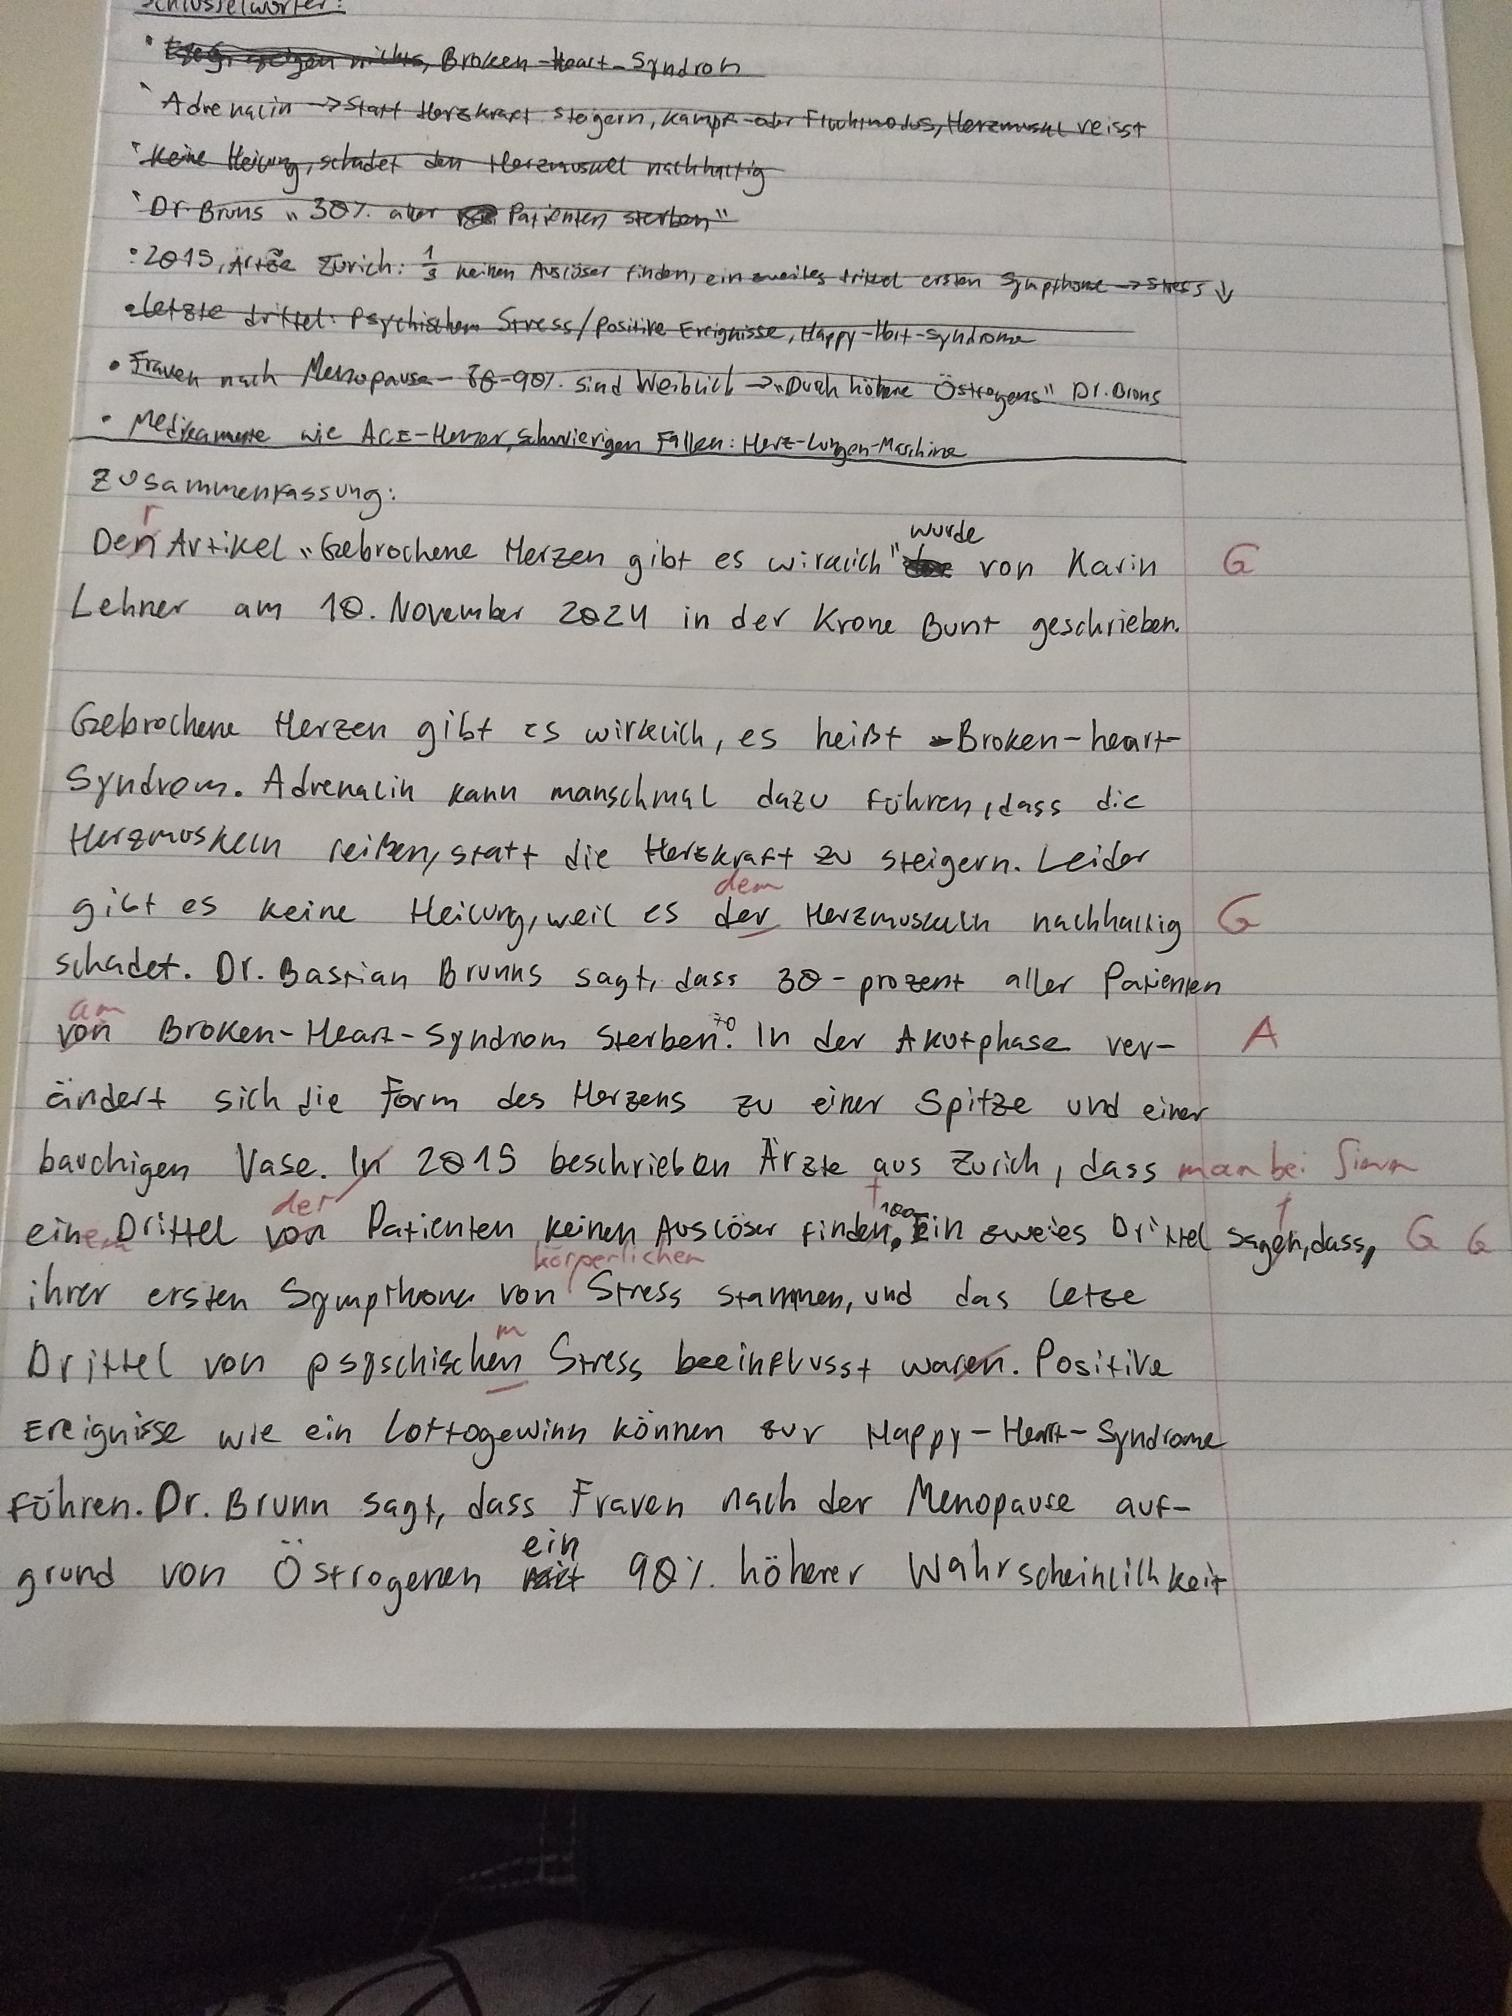 Schlüsselwörter:
• EKG zeigen nichts, Broken-Heart-Syndrom
• Adrenalin -> Statt Herzkraft steigern, Kampf- oder Fluchtmodus, Herzmuskel reisst
• Keine Heilung, schadet den Herzmuskel nachhaltig
• Dr. Bruns „30% aller Patienten sterben"
• 2015, Ärtze Zürich: 1/3 keinen Auslöser finden, ein zweites drittel ersten Sympthome -> Stress ↓
• letzte drittel: Psychischen Stress/Positive Ereignisse, Happy-Hert-Syndrome
• Frauen nach Menopause - 80-90% sind Weiblich -> „Duch höhere Östrogens" Dr. Bruns
• Medikamente wie ACE-Hemer, schwierigen Fällen: Herz-Lungen-Maschine
Zusammenfassung:
r
wurde
Den Artikel „Gebrochene Herzen gibt es wirklich" von Karin G
Lehner am 10. November 2024 in der Krone Bunt geschrieben.
Gebrochene Herzen gibt es wirklich, es heißt Broken-heart-
Syndrom. Adrenalin kann manschmal dazu führen, dass die
Herzmuskeln reißen, statt die Herzkraft zu steigern. Leider
dem
gibt es keine Heilung, weil es der Herzmuskeln nachhaltig G
schadet. Dr. Bastian Brunns sagt, dass 30-prozent aller Patienten
am
von Broken-Heart-Syndrom sterben. 70 In der Akutphase ver- A
ändert sich die Form des Herzens zu einer Spitze und einer
bauchigen Vase. In 2015 beschrieben Ärzte aus Zürich, dass man bei
der
einem Drittel von Patienten keinen Auslöser finden. 100 Ein zweies Drittel sagen, dass, G G
körperlichen
ihrer ersten Sympthome von Stress stammen, und das letze
m
Drittel von psyschischen Stress beeinflusst waren. Positive
Ereignisse wie ein Lottogewinn können zur Happy-Heart-Syndrome
führen. Dr. Brunn sagt, dass Frauen nach der Menopause auf-
ein
grund von Östrogenen mit 90% höherer Wahrscheinlihkeit